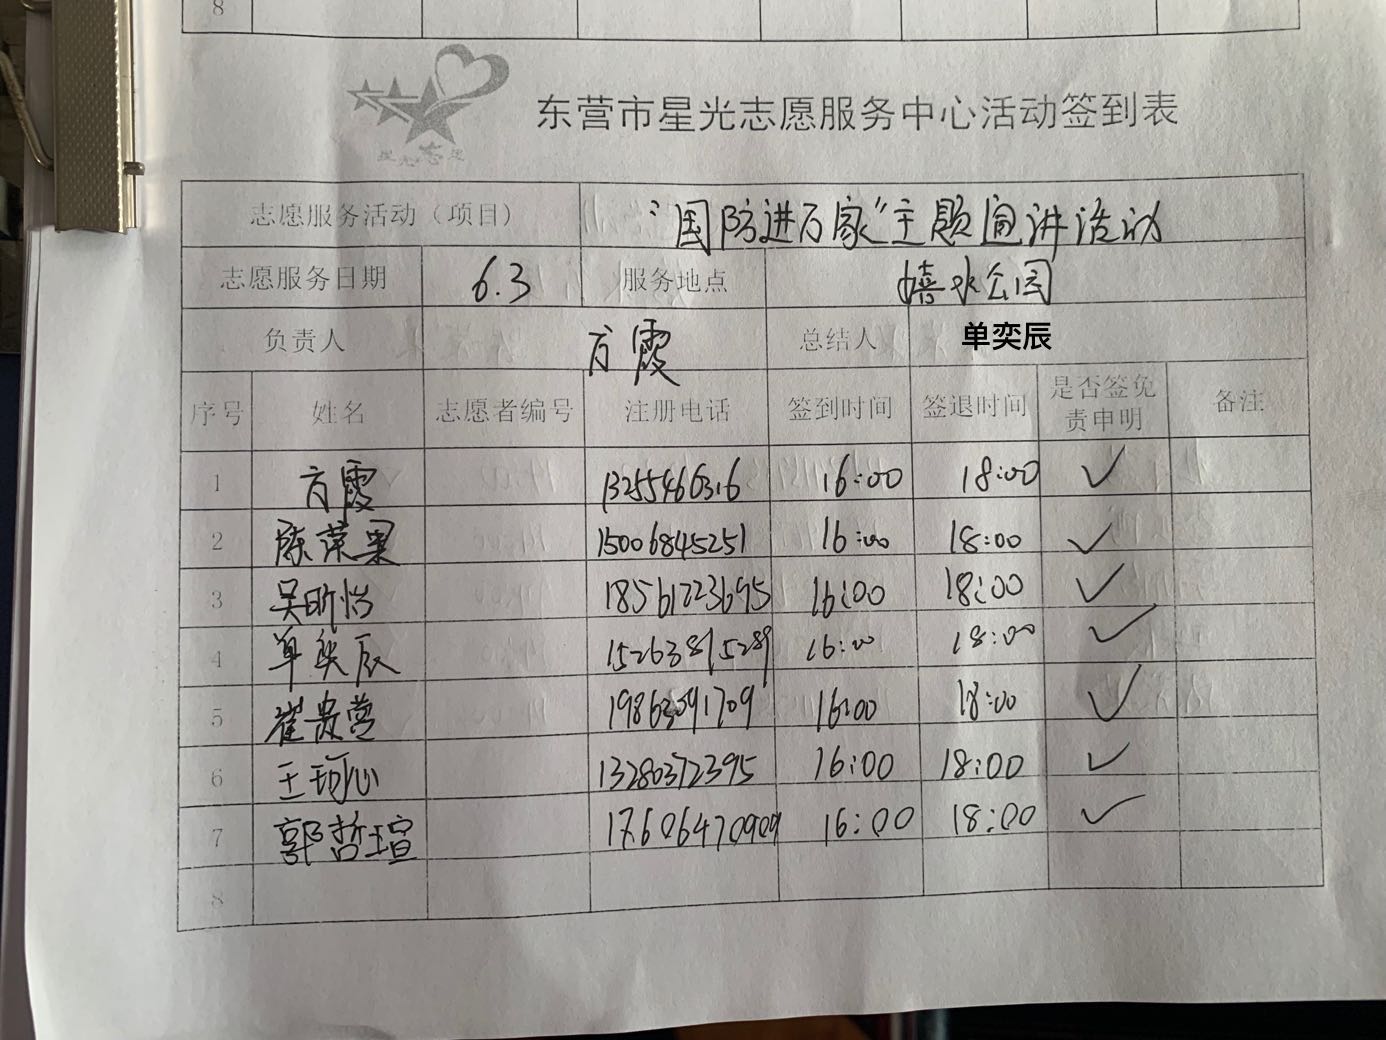 8
星光志愿
东营市星光志愿服务中心活动签到表
志愿服务活动（项目） “国防进万家”主题宣讲活动
志愿服务日期 6.3 服务地点 嬉水公园
负责人 方霞 总结人 单奕辰
序号 姓名 志愿者编号 注册电话 签到时间 签退时间 是否签免责申明 备注
1 方霞 13255466316 16:00 18:00 ✓
2 陈荣果 15006845251 16:00 18:00 ✓
3 吴昕怡 18561223695 16:00 18:00 ✓
4 单奕辰 15263815289 16:00 18:00 ✓
5 崔贵营 19863091709 16:00 18:00 ✓
6 王珂心 13280372395 16:00 18:00 ✓
7 郭哲瑄 17606470909 16:00 18:00 ✓
8